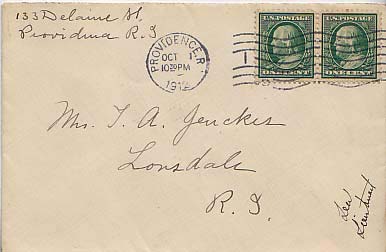 133 Delaine St,
Providence R.I
PROVIDENCE, R.I.
OCT 1
10 30 PM
1912
U.S. POSTAGE
ONE CENT
U.S. POSTAGE
ONE CENT
Mr. T. A. Jenckes
Lonsdale
R. I.